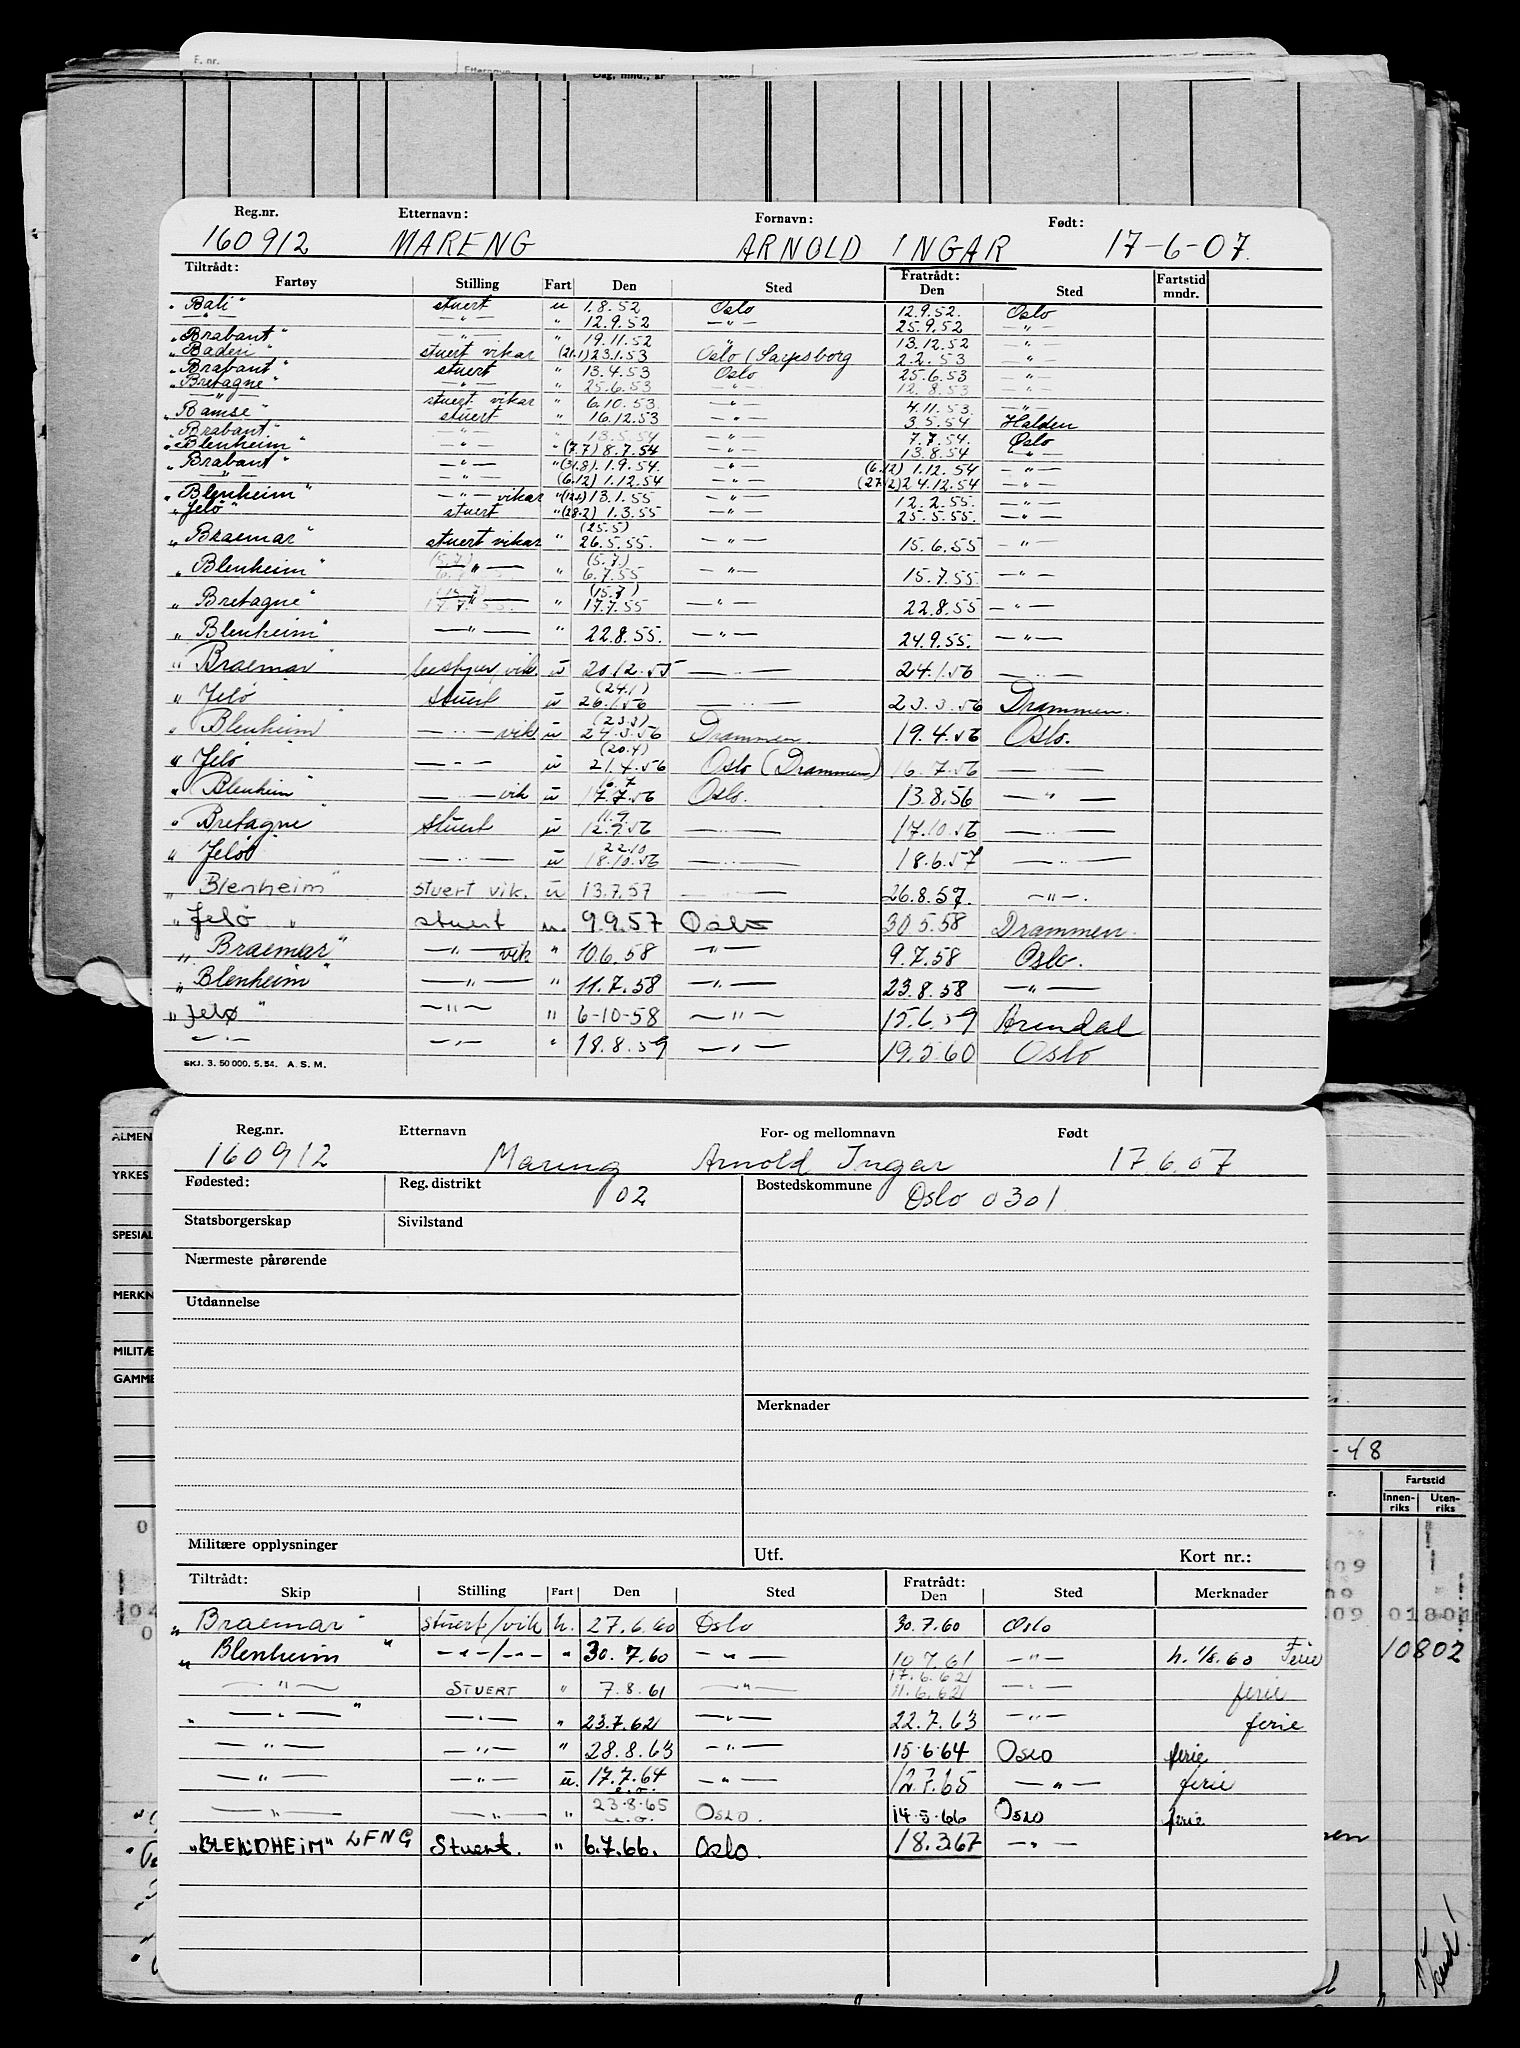 F. nr. Etternavn Dag, mnd., år
Reg.nr. Etternavn: Fornavn: Født:
160912 MARENG ARNOLD INGAR 17-6-07.
Tiltrådt: Fratrådt: Fartstid
Fartøy Stilling Fart Den Sted Den Sted mndr.
"Bali" stuert u 1.8.52 Oslo 12.9.52. Oslo
— " — — " — " 12.9.52 — " — 25.9.52 — " —
"Brabant" — " — " 19.11.52 " 13.12.52 — " —
"Baden" stuert vikar " (21.1) 23.1.53 Oslo (Sarpsborg 2.2.53 — " —
"Brabant" stuert " 13.4.53 Oslo 25.6.53 — " —
"Bretagne" — " — " 25.6.53 — " — 12.8.53 — " —
— " — stuert vikar " 6.10.53. — " — 4.11.53. — " —
"Bamse" stuert " 16.12.53 — " — 3.5.54 Halden
"Brabant" — " — " 13.5.54 — " — 7.7.54. Oslo
"Blenheim" — " — " (7.7) 8.7.54 — " — 13.8.54 — " —
"Brabant" — " — " (31.8). 1.9.54. — " — (6.12) 1.12.54 — " —
— " — (6.12) 1.12.54 — " — (27.12) 24.12.54 — " —
"Blenheim" — " — vikar " 13.1.55 — " — 12.2.55. — " —
"Jelø" stuert " (28.2) 1.3.55 — " — 25.5.55. — " —
"Braemar" stuert vikar " (25.5) 26.5.55. — " — 15.6.55 — " —
"Blenheim" — " — " (5.7.) 6.7.55 — " — 15.7.55 — " —
"Bretagne" — " — " (15.7) 17.7.55 — " — 22.8.55 — " —
"Blenheim" — " — " 22.8.55. — " — 24.9.55. — " —
"Braemar" vik. u 20.12.55 — " — 24.1.56 — " —
"Jelø" stuert u (24.1) 26.1.56 — " — 23.3.56 Drammen.
"Blenheim" — " — vik u (23.3) 24.3.56 Drammen 19.4.56 Oslo.
"Jelø — " — u (20.4) 21.4.56 Oslo (Drammen) 16.7.56 — " —
"Blenheim" — " — vik u 16.7 17.7.56 Oslo. 13.8.56 — " —
"Bretagne" stuert u 11.9. 12.9.56 — " — 17.10.56 — " —
"Jelø" — " — u 22.10 18.10.56 — " — 18.6.57 — " —
"Blenheim" stuert vik. u 13.7.57 — " — 26.8.57. — " —.
"Jelø " stuert u. 9.9.57 Oslo 30.5.58 Drammen.
"Braemar" — " — vik " 10.6.58 — " — 9.7.58 Oslo.
"Blenheim" — " — " 11.7.58 — " — 23.8.58 — " —
"Jelø" — " — " 6-10-58 — " — 15.6.59 Arendal
— " — — " — " 18.8.59 — " — 19.5.60 Oslo
SKJ. 3. 50 000. 5. 54. A. S. M.
Reg.nr. Etternavn For- og mellomnavn Født
160912 Mareng Arnold Ingar 17.6.07
Fødested: Reg. distrikt 02 Bostedskommune Oslo 0301.
Statsborgerskap Sivilstand
Nærmeste pårørende
Utdannelse
Merknader
Militære opplysninger Utf. Kort nr.:
Tiltrådt: Fratrådt:
Skip Stilling Fart Den Sted Den Sted Merknader
"Braemar" stuert/vik h. 27.6.60 Oslo 30.7.60 Oslo
"Blenheim" — " — / — " — " 30.7.60 — " — 10.7.61 — " — h. 1/8.60 Ferie
— " — STUERT " 7.8.61 — " — 17.6.62 11.6.62 — " — ferie
" — " — " — " — " 23.7.62 — " — 22.7.63 — " — ferie
— " — — " — " 28.8.63 — " — 15.6.64 Oslo ferie
— " — — " — u. 17.7.64 e.o. — " — 12.7.65 — " — ferie
— " — — " — " 23.8.65 e.o. Oslo. 14.5.66 Oslo ferie
"BLENDHEIM" LFNG Stuert. " 6.7.66. Oslo. 18.3.67 — " —
ALMEN
YRKES
SPESIAL
MERKN
MILITÆ
GAMME
-48
Fartstid
Innen-riks Uten-riks
09
09
09 01801
10802